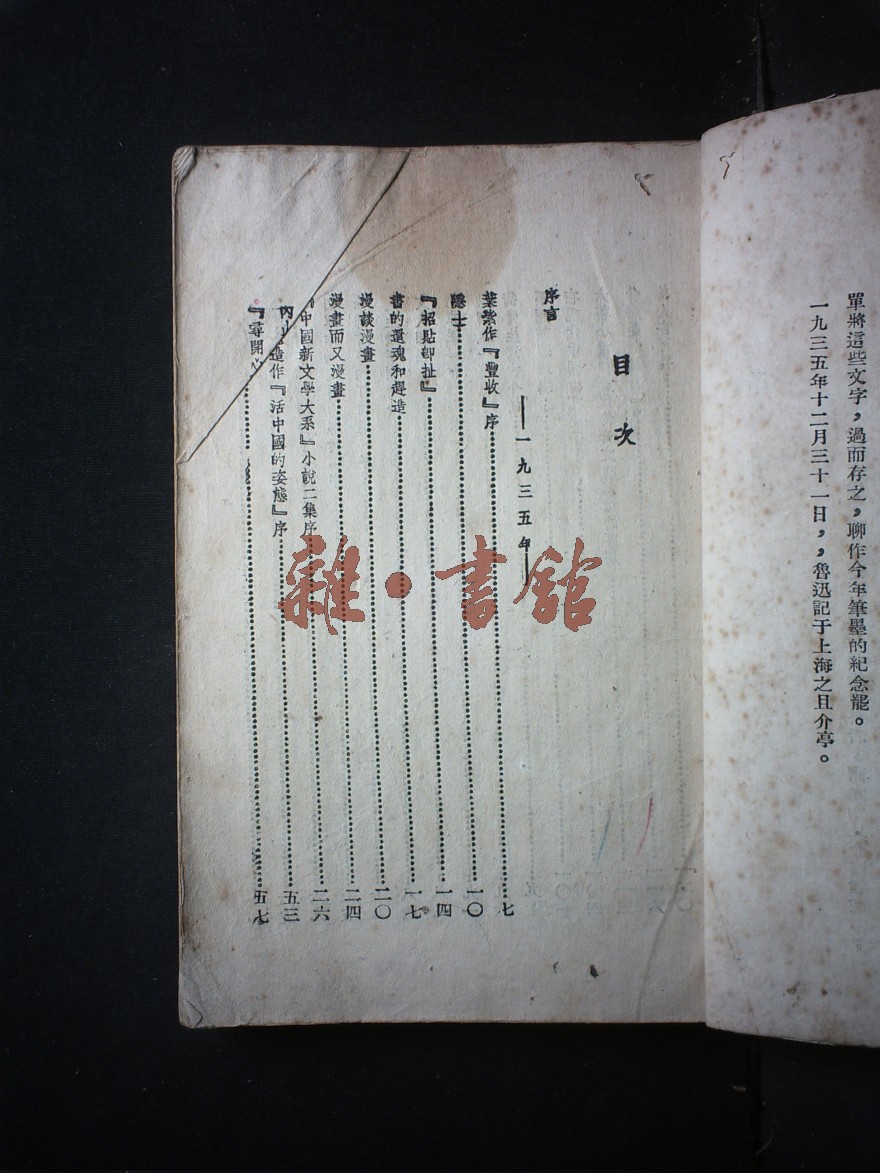 單將這些文字，過而存之，聊作今年筆墨的紀念罷。
一九三五年十二月三十一日，，魯迅記于上海之且介亭。
目次
序言
一九三五年
葉紫作『豐收』序 七
隱士 一〇
『招貼即扯』 一四
書的還魂和趕造 一七
漫談漫畫 二〇
漫畫而又漫畫 二四
『中國新文學大系』小說二集序 二六
內山造作『活中國的姿態』序 五三
『尋開心』 五七
雜·書館